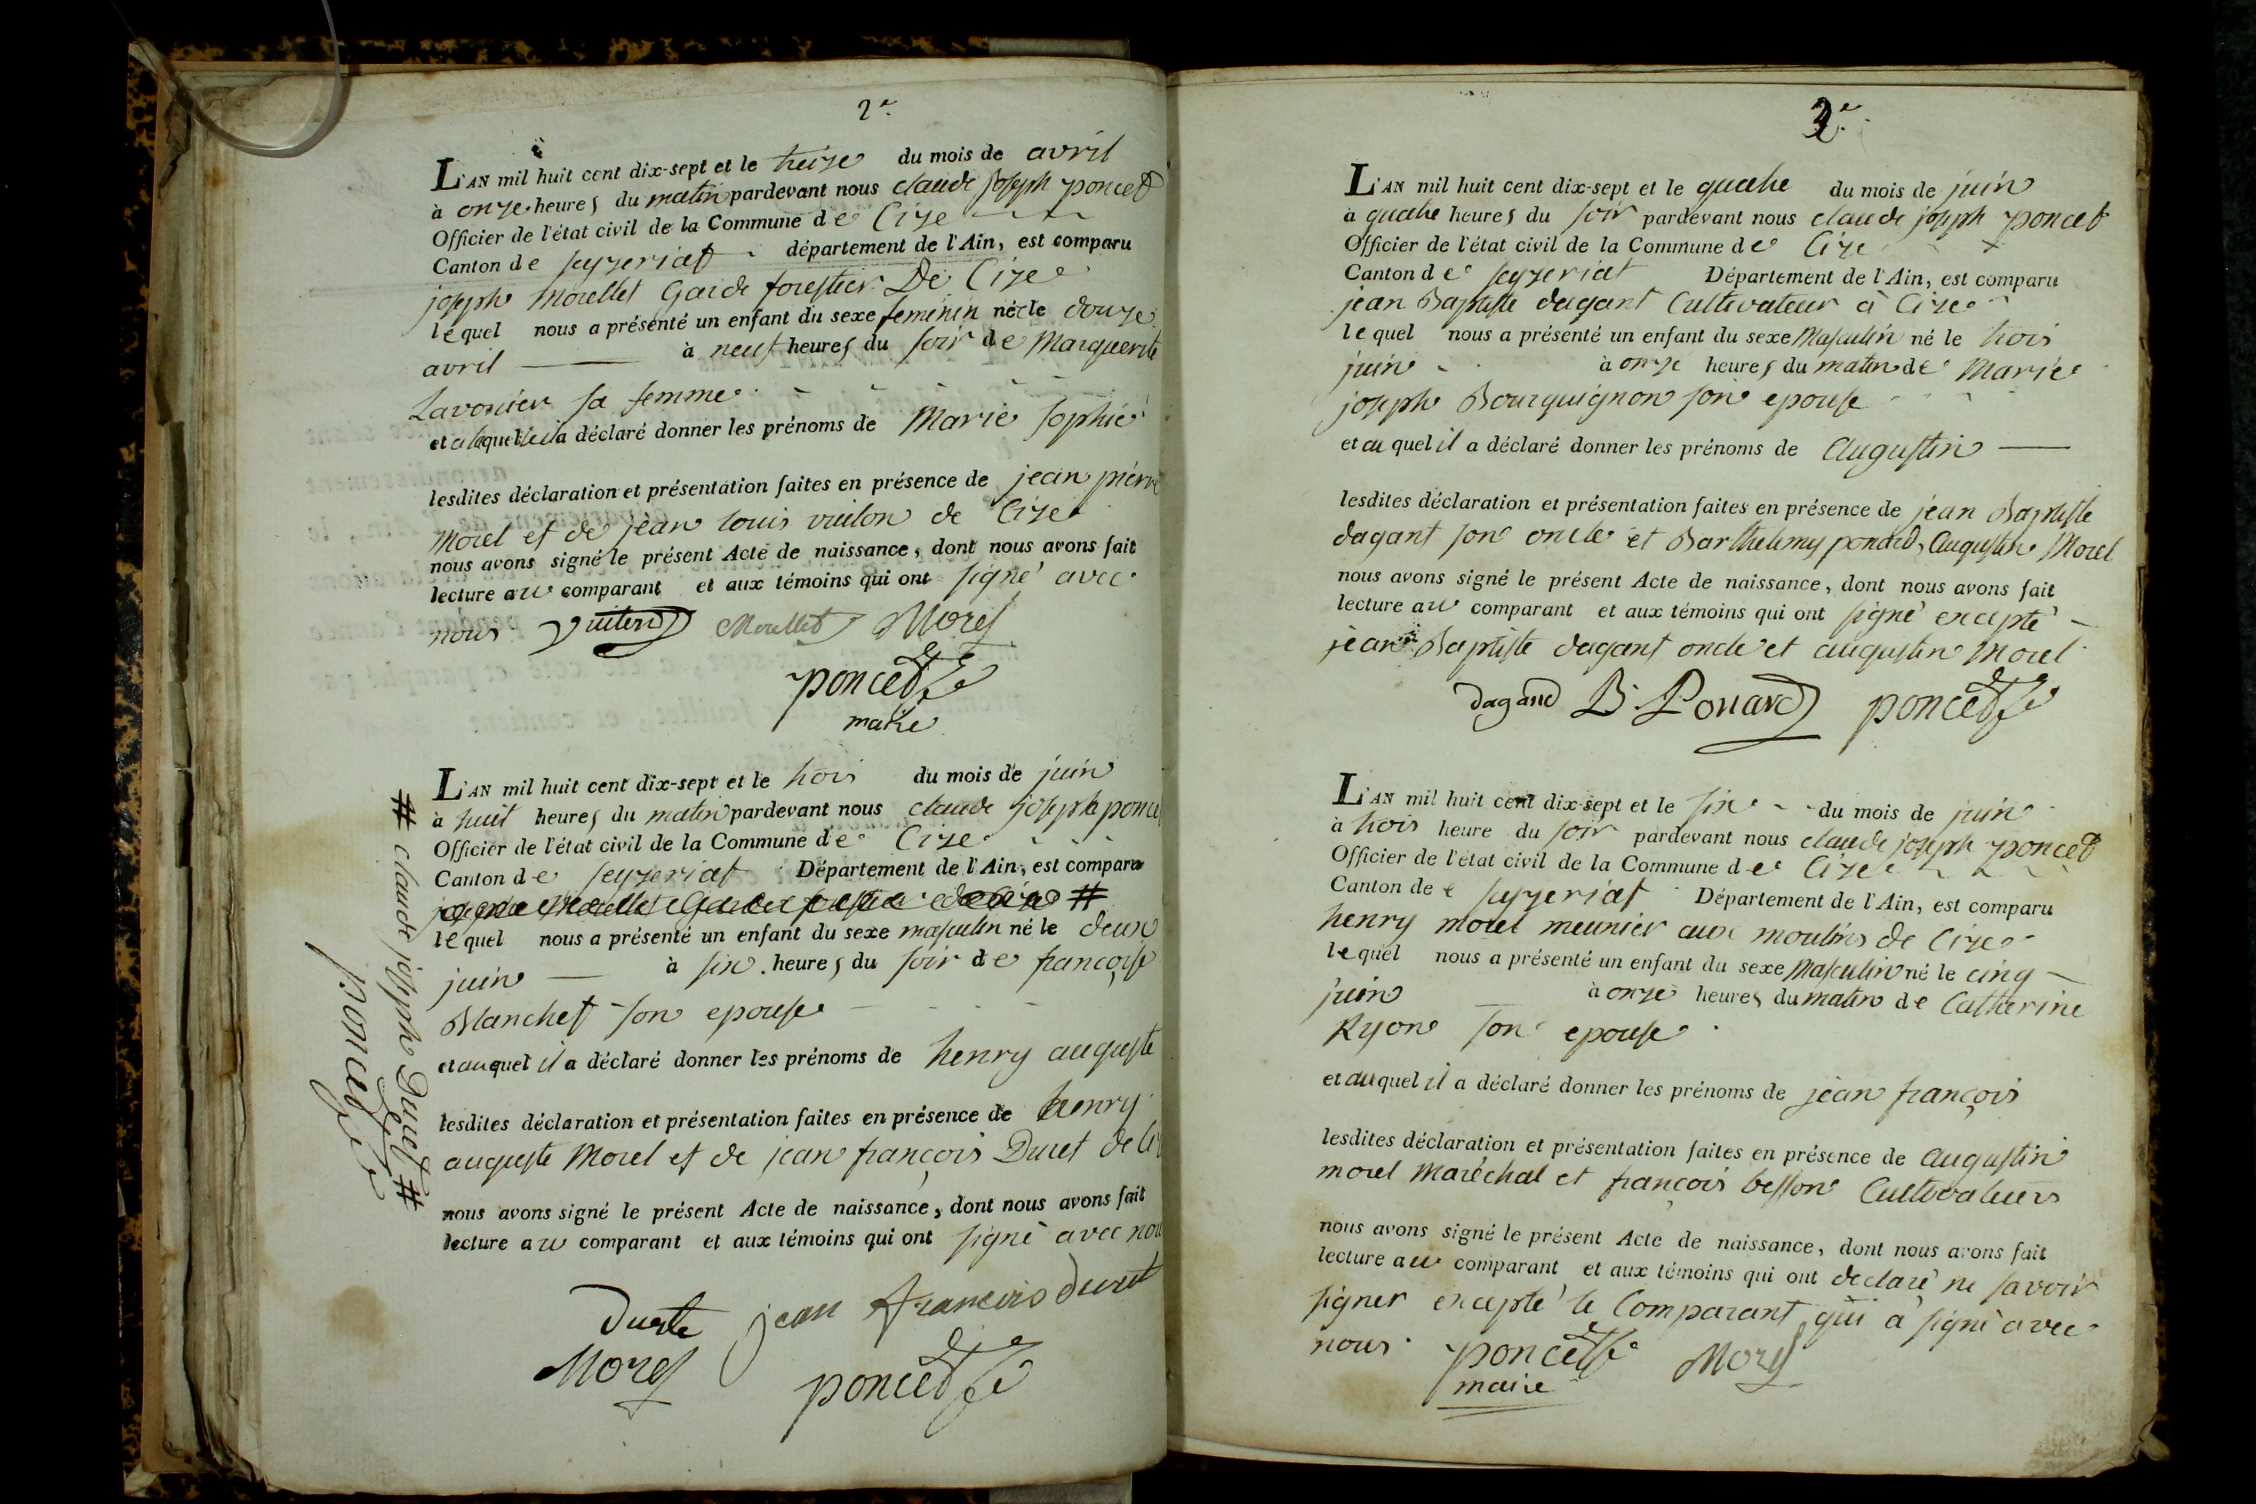 2e
L'AN mil huit cent dix-sept et le treize du mois de avril
à onze heures du matin pardevant nous claude joseph poncet
Officier de l'état civil de la Commune de Cize
Canton de seyzeriat département de l'Ain, est comparu
joseph Morellet Garde forestier De Cize
lequel nous a présenté un enfant du sexe feminin né le douze
avril à neuf heures du soir de Marguerite
Lavonier sa femme
et a déclaré donner les prénoms de Marie sophie
lesdites déclaration et présentation faites en présence de jean pierre
Morel et de jean louis vuiton de Cize
nous avons signé le présent Acte de naissance, dont nous avons fait
lecture au comparant et aux témoins qui ont signé avec
nous Vuiton Morellet Morel
poncet
maire
L'AN mil huit cent dix-sept et le trois du mois de juin
à huit heures du matin pardevant nous claude joseph poncet
Officier de l'état civil de la Commune de Cize
Canton de seyzeriat Département de l'Ain, est comparu
joseph Morellet Garde forestier de Cize #
lequel nous a présenté un enfant du sexe masculin né le deux
juin à six heures du soir de françoise
Blanchet son epouse
et auquel il a déclaré donner les prénoms de henry auguste
lesdites déclaration et présentation faites en présence de henry
auguste Morel et de jean françois Duret de
nous avons signé le présent Acte de naissance, dont nous avons fait
lecture au comparant et aux témoins qui ont signé avec nou
jean francois duret
Morel poncet
# claude joseph Duret #
poncet
3e
L'AN mil huit cent dix-sept et le quatre du mois de juin
à quatre heures du soir pardevant nous claude joseph poncet
Officier de l'état civil de la Commune de Cize
Canton de seyzeriat Département de l'Ain, est comparu
jean Baptiste dagant Cultivateur à Cize
lequel nous a présenté un enfant du sexe Masculin né le trois
juin à onze heures du matin de Marie
joseph Bourguignon son epouse
et au quel il a déclaré donner les prénoms de augustin
lesdites déclaration et présentation faites en présence de jean Baptiste
dagant son oncle et Barthelemy ponard, augustin Morel
nous avons signé le présent Acte de naissance, dont nous avons fait
lecture au comparant et aux témoins qui ont signé excepté
jean Baptiste dagant oncle et augustin Morel
dagand B. Ponard poncet
L'AN mil huit cent dix-sept et le six du mois de juin
à trois heure du soir pardevant nous claude joseph poncet
Officier de l'état civil de la Commune de Cize
Canton de seyzeriat Département de l'Ain, est comparu
henry morel meunier aux moulins de Cize
lequel nous a présenté un enfant du sexe Masculin né le cinq
juin à onze heures du matin de Catherine
Ryon son epouse
et auquel il a déclaré donner les prénoms de jean françois
lesdites déclaration et présentation faites en présence de augustin
morel Maréchal et françois besson Cultivateurs
nous avons signé le présent Acte de naissance, dont nous avons fait
lecture au comparant et aux témoins qui ont declaré ne savoir
signer excepté le Comparant qui à signé avec
nous poncet Morel
maire